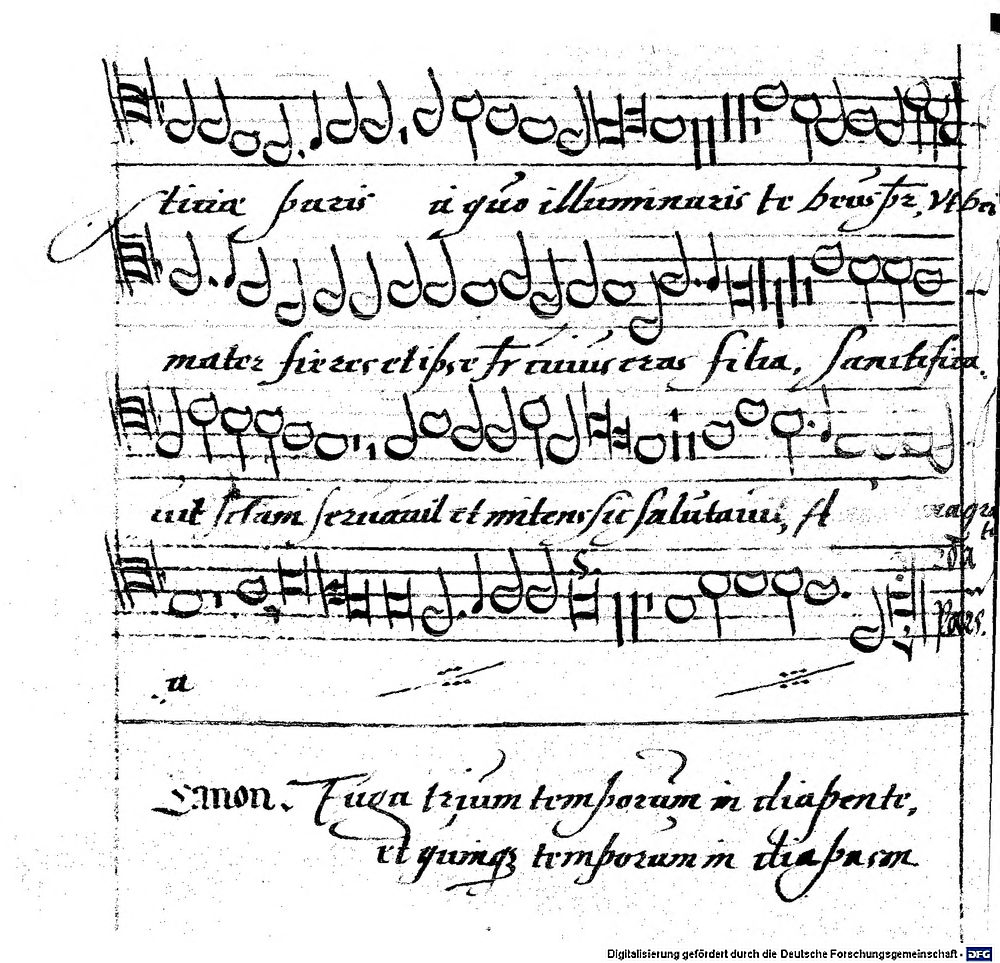 ticiæ paris a quo illuminaris te deus pr̄, Vt dei
mater fieres et ipse fr̄ cuius eras filia, Sanctifica
uit sc̄tam seruauit et mitens sic salutauit, A
a
Canon. Fuga trium temporum in diapente,
et quinqꝫ temporum in diapason
Digitalisierung gefördert durch die Deutsche Forschungsgemeinschaft - DFG